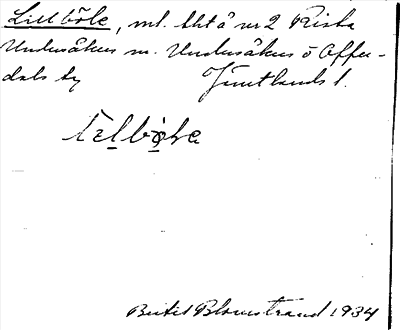 Lillböle, ml. tht å nr 2 Rista
Undersåkers sn. Undersåkers o Offer-
dals tg Jämtlands l.
Lillböle
Bertil Blomstrand 1934